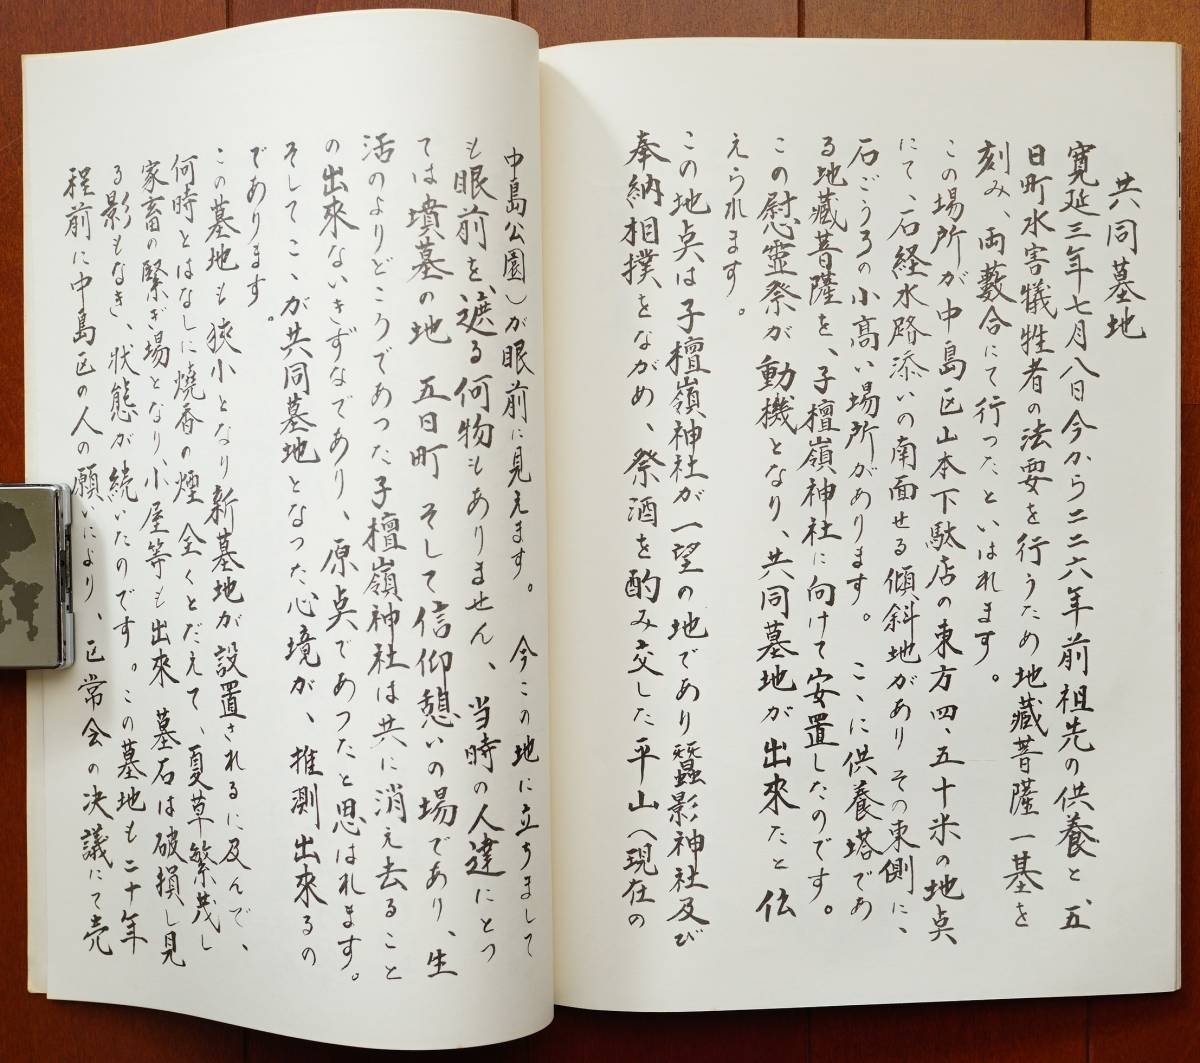 共同墓地
寛延三年七月八日今から二二六年前祖先の供養と、五
日町水害犠牲者の法要を行うため地藏菩薩一基を
刻み、両藪合にて行つたといはれます。
この場所が中島区山本下駄店の東方四、五十米の地点
にて、石経水路添いの南面せる傾斜地があり その東側に、
石ごうろの小高い場所があります。こゝに供養塔であ
る地藏菩薩を、子檀嶺神社に向けて安置したのです。
この慰霊祭が動機となり、共同墓地が出來たと伝
えられます。
この地点は子檀嶺神社が一望の地であり蠶影神社及び
奉納相撲をながめ、祭酒を酌み交した平山(現在の
中島公園)が眼前に見えます。 今この地に立ちまして
も眼前を遮る何物もありません、当時の人達にとつ
ては墳墓の地 五日町 そして信仰憩いの場であり、生
活のよりどころであつた子檀嶺神社は共に消え去ること
の出來ないきずなであり、原点であつたと思はれます。
そしてこゝが共同墓地となつた心境が、推測出來るの
であります。
この墓地も狹小となり新墓地が設置されるに及んで、
何時とはなしに燒香の煙 全くとだえて、夏草繁茂し
家畜の繋ぎ場となり、小屋等も出來 墓石は破損し見
る影もなき、状態が続いたのです。この墓地も二十年
程前に中島区の人の願いにより、区常会の決議にて売